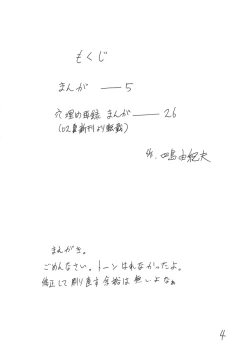 もくじ
まんが ―― 5
穴埋め再録 まんが ―― 26
(02夏新刊より転載)
作. 四島由紀夫
まえがき。
ごめんなさい。トーンはれなかったよ。
修正して刷り直す余裕は無いよなぁ
4